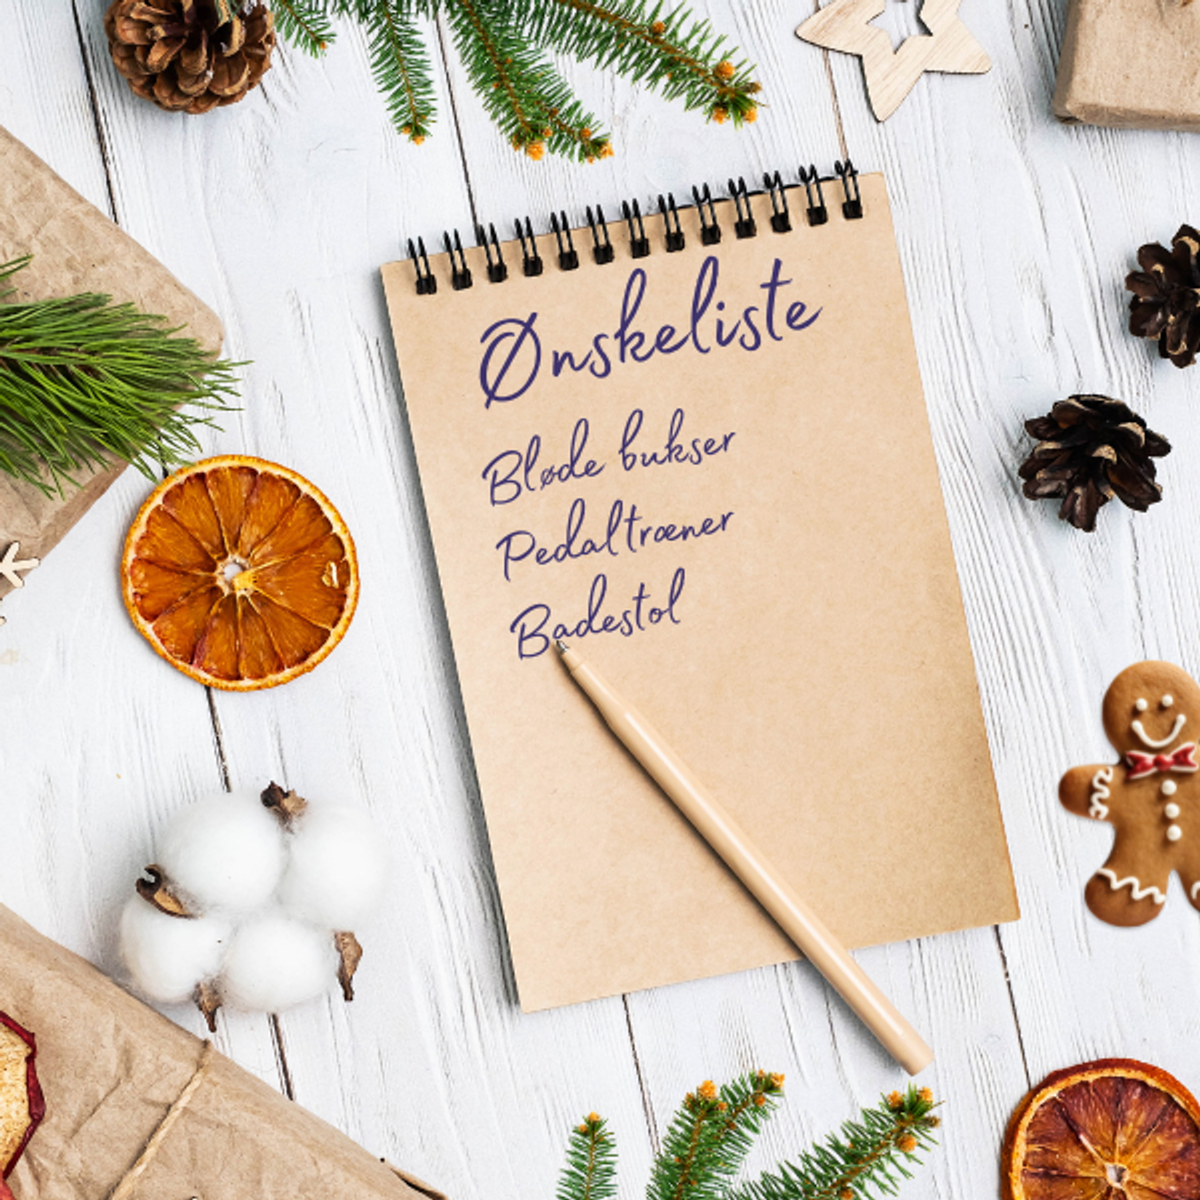 Ønskeliste
Bløde bukser
Pedaltræner
Badestol